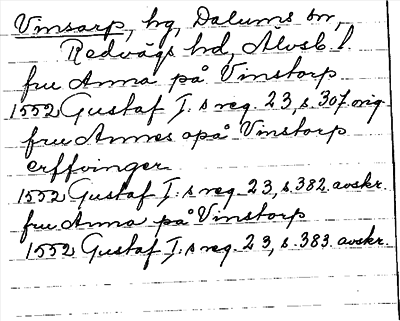 Vinsarp, hg, Dalums sn,
Redvägs hd, Älvsb l.
fru Anna på Vinstorp
1552 Gustaf I:s reg. 23, s. 307 orig.
fru Annes opå Vinstorp
erffvinger
1552 Gustaf I:s reg. 23, s. 382 avskr.
fru Anna på Vinstorp
1552 Gustaf I:s reg. 23, s. 383 avskr.